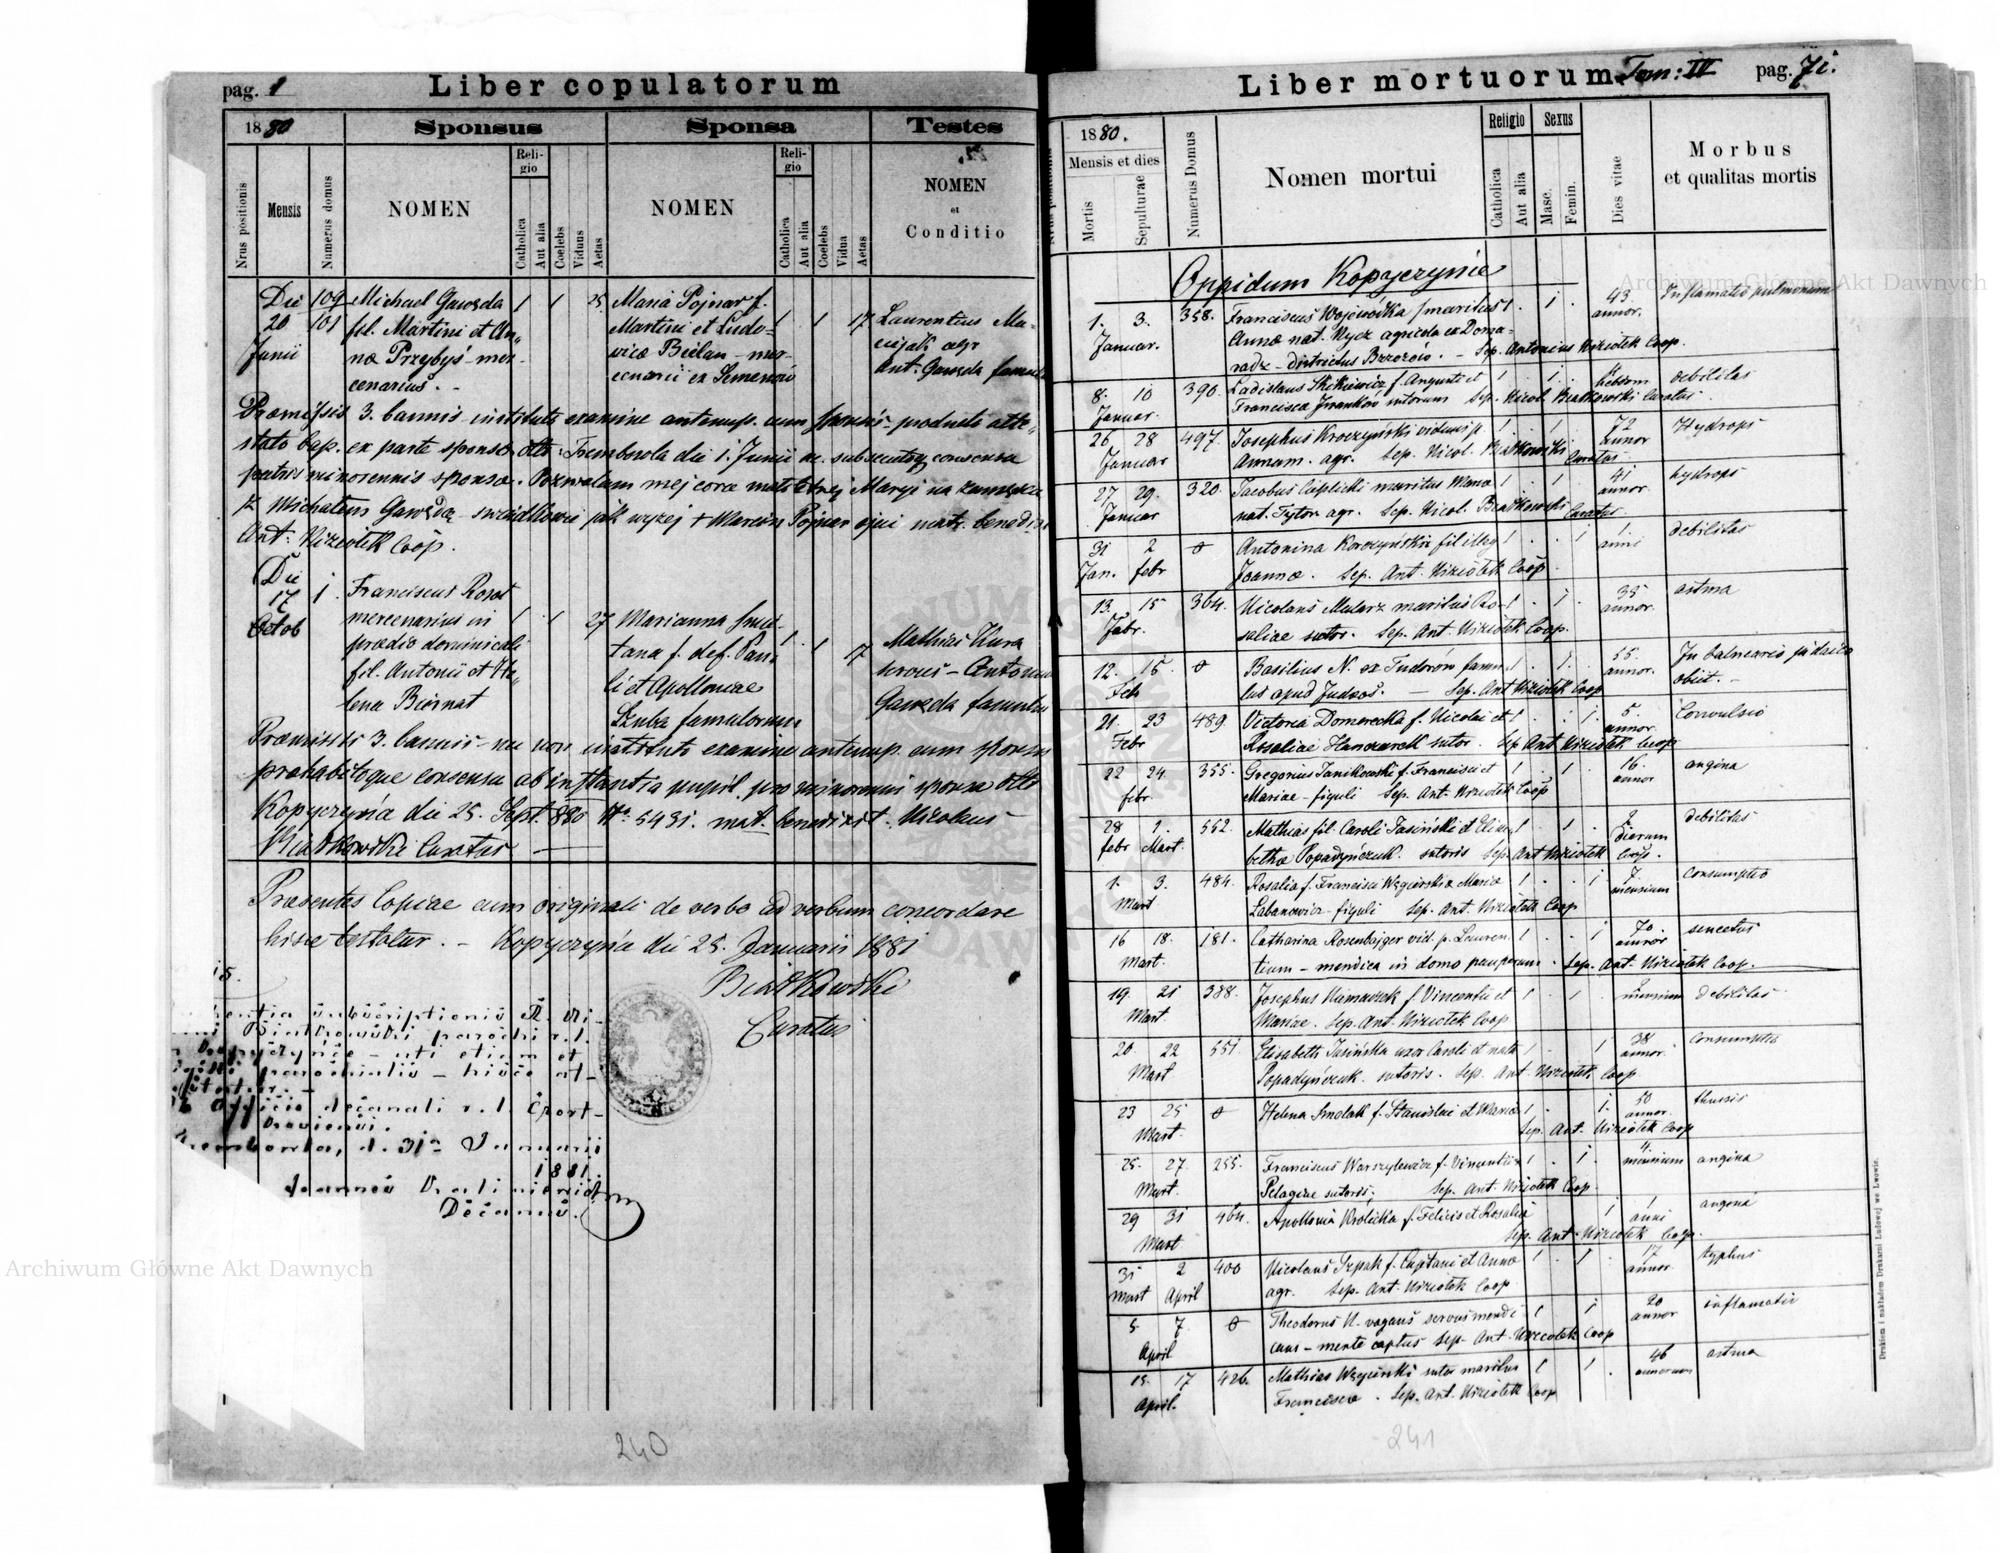 pag. 1
Liber copulatorum
1880
Sponsus
Sponsa
Testes
Nrus positionis
Mensis
Numerus domus
NOMEN
Religio
Catholica
Aut alia
Coelebs
Viduus
Aetas
NOMEN
Religio
Catholica
Aut alia
Coelebs
Vidua
Aetas
NOMEN
et
Conditio
Die 109 Michael Gawęda 1 1 25 Maria Pojnar f.
20 101 fil. Martini et An- Martini et Ludo- 1 1 17 Laurentius
Junii næ Przybyś mer- vicæ Bielan - mer- agr
cenarius. - cenarii ex Ant. Gawęda famul
Præmissis 3. bannis instituto examine antenup. cum sponsis - producto atte-
stato bap. ex parte sponsi dtto Trembowla die 1. Junii ac. consensu
patris minorennis sponsæ. Pozwalam mej córce małoletniej Maryi na zamęście
z Michałem Gawędą - świadkowie jak wyżej + Marcin Pojnar ojciec matr. benedixi
Ant. Coop.
Die
17 1 Franciscus
Octob mercenarius in 1 1 27 Marianna
prædio dominicali tana f. def. Pau- 1 1 17 Mathias Kura
fil. Antonii et He- li et Apolloniae servus - Antonius
lena Biernat Szuba famulorum Gawęda famulus
Præmissis 3. bannis - nec non instituto examine antenup. cum sponsis
præhabitoque consensu ab instantia pupil. pro minorenni sponsa dtto
Kopyczyńce die 25. Sept. 880 No. 5431. mat. benedixit. Nicolaus
Białkowski Curatus
Præsentes Copiae cum originali de verbo ad verbum concordare
hisce testatur. - Kopyczyńce die 25. Januarii 1881
Białkowski
Curatus
subscriptionis
Białkowski parochi r. l.
Kopyczyńce - uti etiam et
parochialis - hisce at-
Officio decanali r. l. Czort-
koviensi.
Trembowla, d. 31a Januarii
1881
Joannes
Decanus.
240
Liber mortuorum Tom: IV
pag. 71.
1880.
Mensis et dies
Mortis
Sepulturae
Numerus Domus
Nomen mortui
Religio
Catholica
Aut alia
Sexus
Masc.
Femin.
Dies vitae
Morbus
et qualitas mortis
Oppidum Kopyczyńce
1. 3. 358. Franciscus Wojewódka maritus 1 . 1 . 43 Inflamatio pulmonum
Januar. Annæ nat. Nycz agricola ex Doma- annor.
radz - districtus Brzozów. - Sep. Antonius Coop.
8. 10 390. Ladislaus f. Augusti et 1 . 1 . hebdom debilitas
Januar. Francisca sutorum Sep. Nicol. Białkowski Curatus
26 28 497. Josephus Kroczyński viduus p. 72 Hydrops
Januar Annam. agr. Sep. Nicol. Białkowski annor
Curatus
27 29. 320. Jacobus Cieplicki maritus Mariæ 1 . 1 . 41 hydrops
Januar nat. Tytor agr. Sep. Nicol. Białkowski annor.
Curatus
31 2 0 Antonina fil illeg 1 . . 1 1 debilitas
Jan. febr Joannæ. Sep. Ant. Coop. anni
13. 15 364. Nicolaus Mularz maritus Ro- 1 . 1 . 35 astma
Febr. saliae sutor. Sep. Ant. Coop. annor.
12. 15 0 Basilius N. ex Tudorów famu- 1 . 1 . 55. In balneario judaico
Feb lus apud Judæos. - Sep. Ant. Coop annor. obiit. -
21. 23 489 Victoria Domorecka f. Nicolai et 1 . . 1. 5. Convulsio
Febr Rosaliae sutor. Sep Ant Coop annor.
22 24. 355. Gregorius Janikowski f. Francisci et 1 . 1 . 16. angina
febr. Mariae - figuli Sep. Ant. Coop annor
28 1. 552. Mathias fil. Caroli Jasiński et Elisa- 1 . 1 . debilitas
febr Mart. bethæ Popadyńczuk. sutoris Sep. Ant Coop. dierum
1. 3. 484. Rosalia f. Francisci Węgierski et Mariæ 1 . . 1 7. consumptio
Mart Labanowicz - figuli Sep. Ant. Coop mensium
16 18. 181. Catharina Rosenbajger vid. p. Lauren- 1 . . 1 70. senectus
Mart. tium - mendica in domo pauperum. Sep. Ant. Coop. annor
19. 21 388. Josephus f. Vincentii et 1 . 1 . mensium debilitas
Mart. Mariae. Sep. Ant. Coop
20. 22 551. Elisabeth Jasińska uxor Caroli et nata 1 . . 1 38 consumptio
Mart Popadyńczuk. sutoris. Sep. Ant. Coop annor.
23 25 0 Helena Smolak f. Stanislai et Mariæ 1 . . 1. 50 thussis
Mart. Sep. Ant. Coop annor.
25. 27. 255. Franciscus Warszylewicz f. Vincentii et 1 . 1 . 4. angina
Mart. Pelagiae sutoris; Sep. Ant. Coop. mensium
29 31 464. Apollonia Wolicka f. Felicis et Rosaliæ 1 1 angina
Mart Sep. Ant. Coop. anni
31 2 400 Nicolaus Szpak f. Cajetani et Annæ 1 . 1 . 17 typhus
Mart April agr. Sep. Ant. Coop annor.
5 7. 0 Theodorus N. vagans servus mendi- 1 1 20 inflamatio
April cans - mente captus Sep. Ant. Coop annor
15. 17 426. Mathias Węgierski sutor maritus 1 1 . 46 astma
April. Franciscæ. Sep. Ant. Coop annorum
Drukiem i nakładem Drukarni Ludowej we Lwowie.
241
Archiwum Główne Akt Dawnych
Archiwum Główne Akt Dawnych